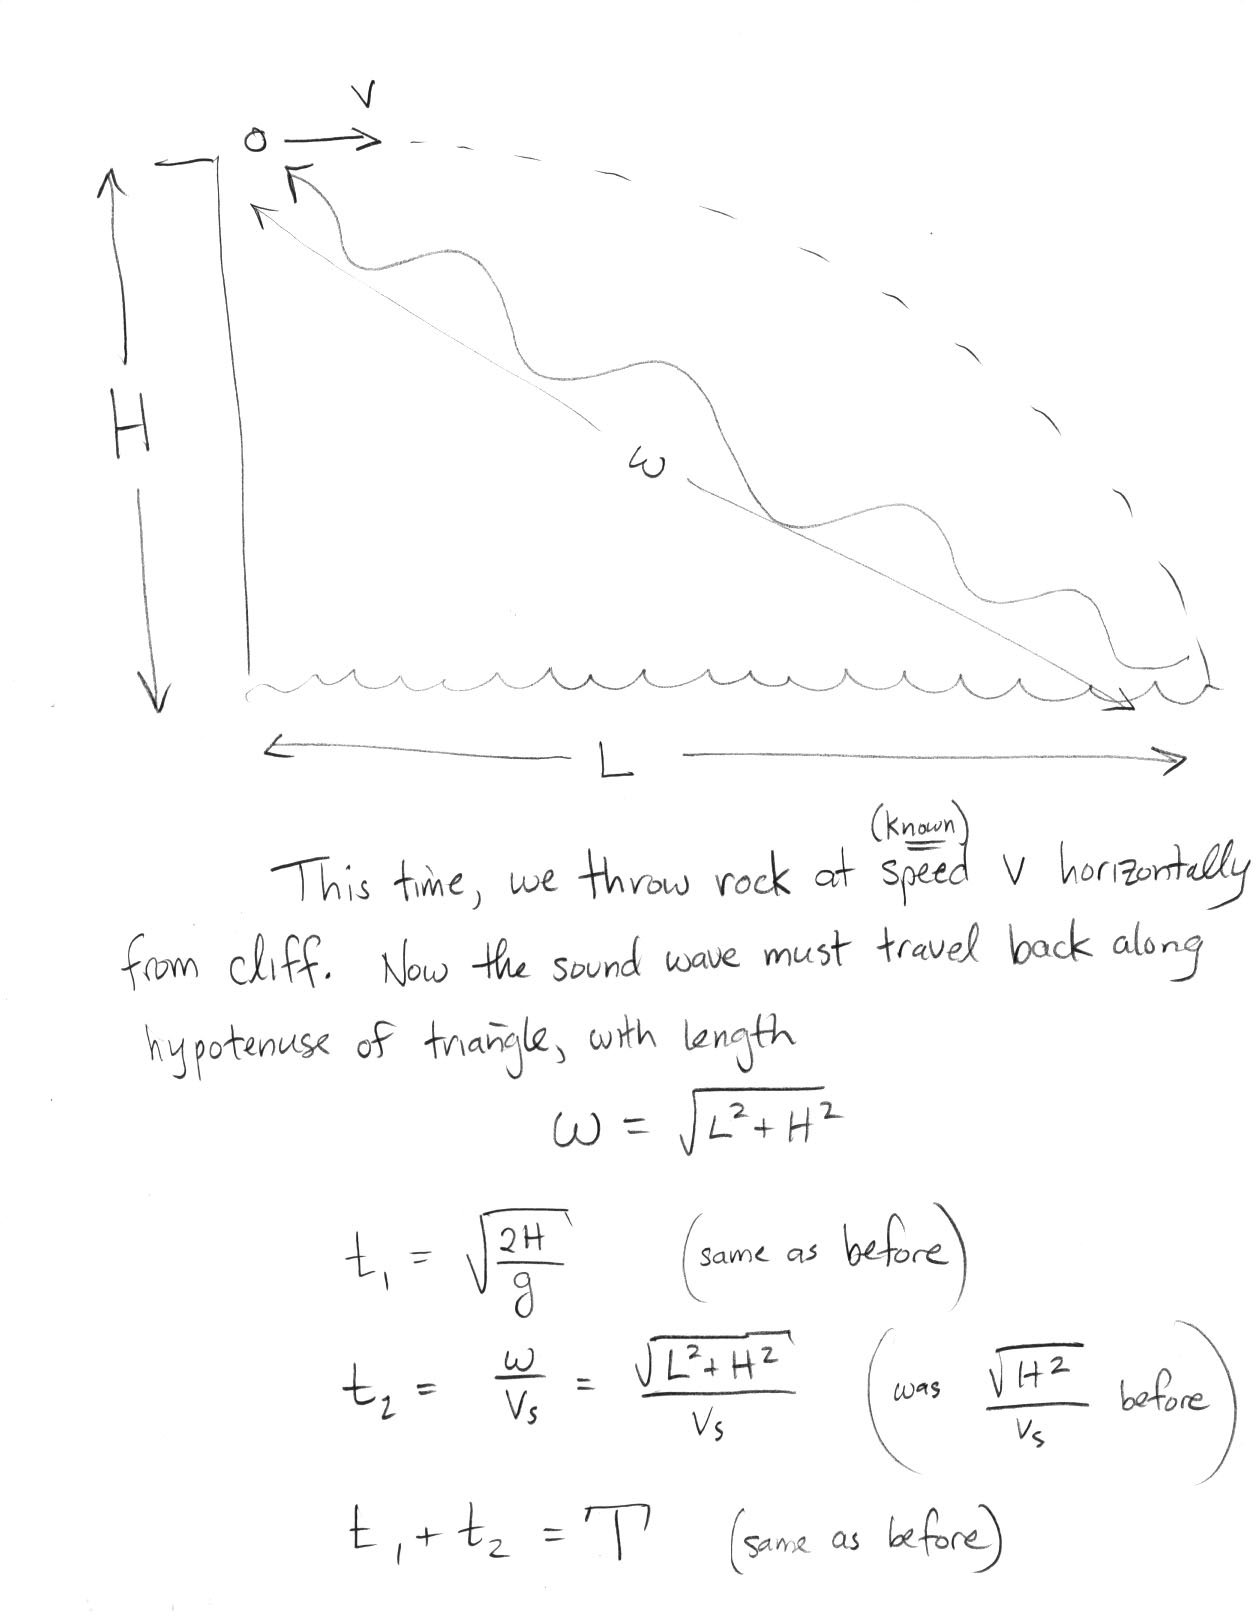 v
H
ω
L
(known)
This time, we throw rock at speed v horizontally
from cliff. Now the sound wave must travel back along
hypotenuse of triangle, with length
ω = √(L² + H²)
t₁ = √(2H/g) (same as before)
t₂ = ω/Vs = √(L² + H²)/Vs (was √(H²)/Vs before)
t₁ + t₂ = T (same as before)